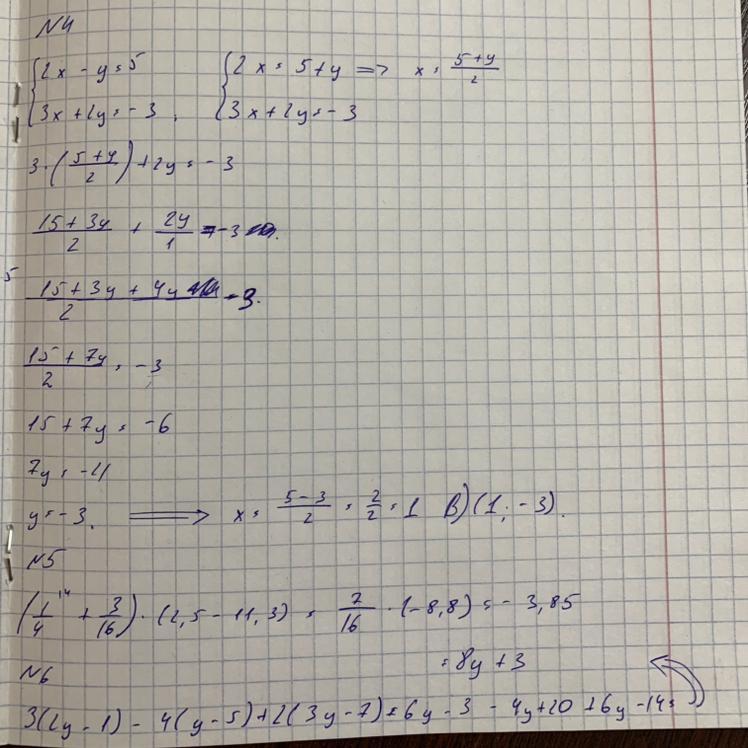 N4
{2x - y = 5 {2x = 5+y => x = (5+y)/2
{3x+2y = -3, {3x+2y = -3
3·((5+y)/2)+2y = -3
(15+3y)/2 + 2y/1 = -3
(15+3y+4y)/2 = -3.
(15+7y)/2 = -3
15+7y = -6
7y = -21
y = -3. => x = (5-3)/2 = 2/2 = 1 B)(1; -3).
N5
(1/4 + 3/16)·(2,5 - 11,3) = 7/16 · (-8,8) = -3,85
N6
3(2y-1) - 4(y-5)+2(3y-7) = 6y-3 - 4y+20 +6y-14 =
= 8y+3